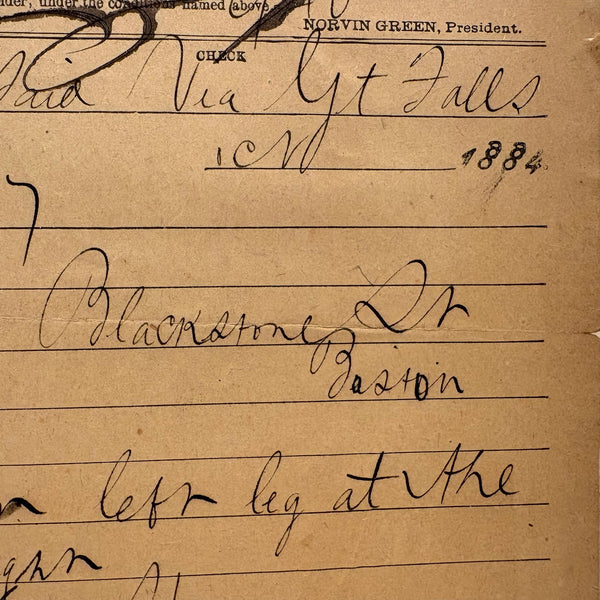 under the conditions named above.
NORVIN GREEN, President.
CHECK
Paid Via Gt Falls
1884
Blackstone St
Boston
left leg at the